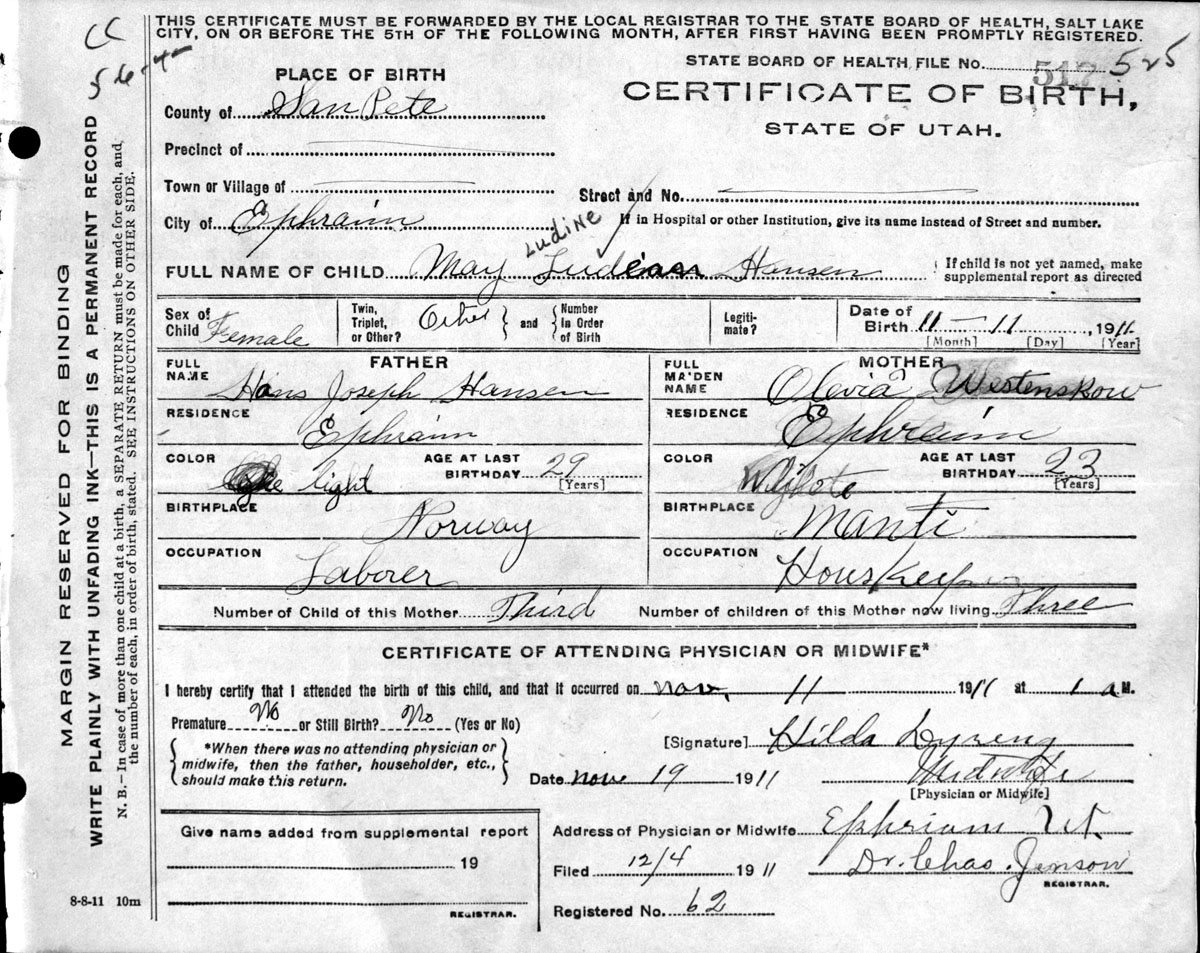 THIS CERTIFICATE MUST BE FORWARDED BY THE LOCAL REGISTRAR TO THE STATE BOARD OF HEALTH, SALT LAKE
CITY, ON OR BEFORE THE 5TH OF THE FOLLOWING MONTH, AFTER FIRST HAVING BEEN PROMPTLY REGISTERED.
STATE BOARD OF HEALTH FILE NO. 517 525
CERTIFICATE OF BIRTH,
STATE OF UTAH.
PLACE OF BIRTH
County of San Pete
Precinct of
Town or Village of
Street and No.
City of Ephraim
If in Hospital or other Institution, give its name instead of Street and number.
Ludine
FULL NAME OF CHILD May Hansen
If child is not yet named, make
supplemental report as directed
Sex of Child Female
Twin, Triplet, or Other? Other and Number in Order of Birth
Legitimate?
Date of Birth 11-11, 1911
[Month] [Day] [Year]
FATHER
FULL NAME Hans Joseph Hansen
RESIDENCE Ephraim
COLOR light
AGE AT LAST BIRTHDAY 29
[Years]
BIRTHPLACE Norway
OCCUPATION Laborer
MOTHER
FULL MAIDEN NAME Olevia Westenskow
RESIDENCE Ephraim
COLOR White
AGE AT LAST BIRTHDAY 23
[Years]
BIRTHPLACE Manti
OCCUPATION Houskeeper
Number of Child of this Mother Third Number of children of this Mother now living Three
CERTIFICATE OF ATTENDING PHYSICIAN OR MIDWIFE*
I hereby certify that I attended the birth of this child, and that it occurred on Nov. 11 1911 at 1 a M.
Premature No or Still Birth? No (Yes or No)
*When there was no attending physician or
midwife, then the father, householder, etc.,
should make this return.
[Signature] Hilda Dyreng
Date Nov 19 1911
Midwife
[Physician or Midwife]
Give name added from supplemental report
19
REGISTRAR.
Address of Physician or Midwife Ephriam Ut.
Filed 12/4 1911
Dr. Chas. Jenson
REGISTRAR.
Registered No. 62
8-8-11 10m
MARGIN RESERVED FOR BINDING
WRITE PLAINLY WITH UNFADING INK—THIS IS A PERMANENT RECORD
N. B.—In case of more than one child at a birth, a SEPARATE RETURN must be made for each, and,
the number of each, in order of birth, stated. SEE INSTRUCTIONS ON OTHER SIDE.